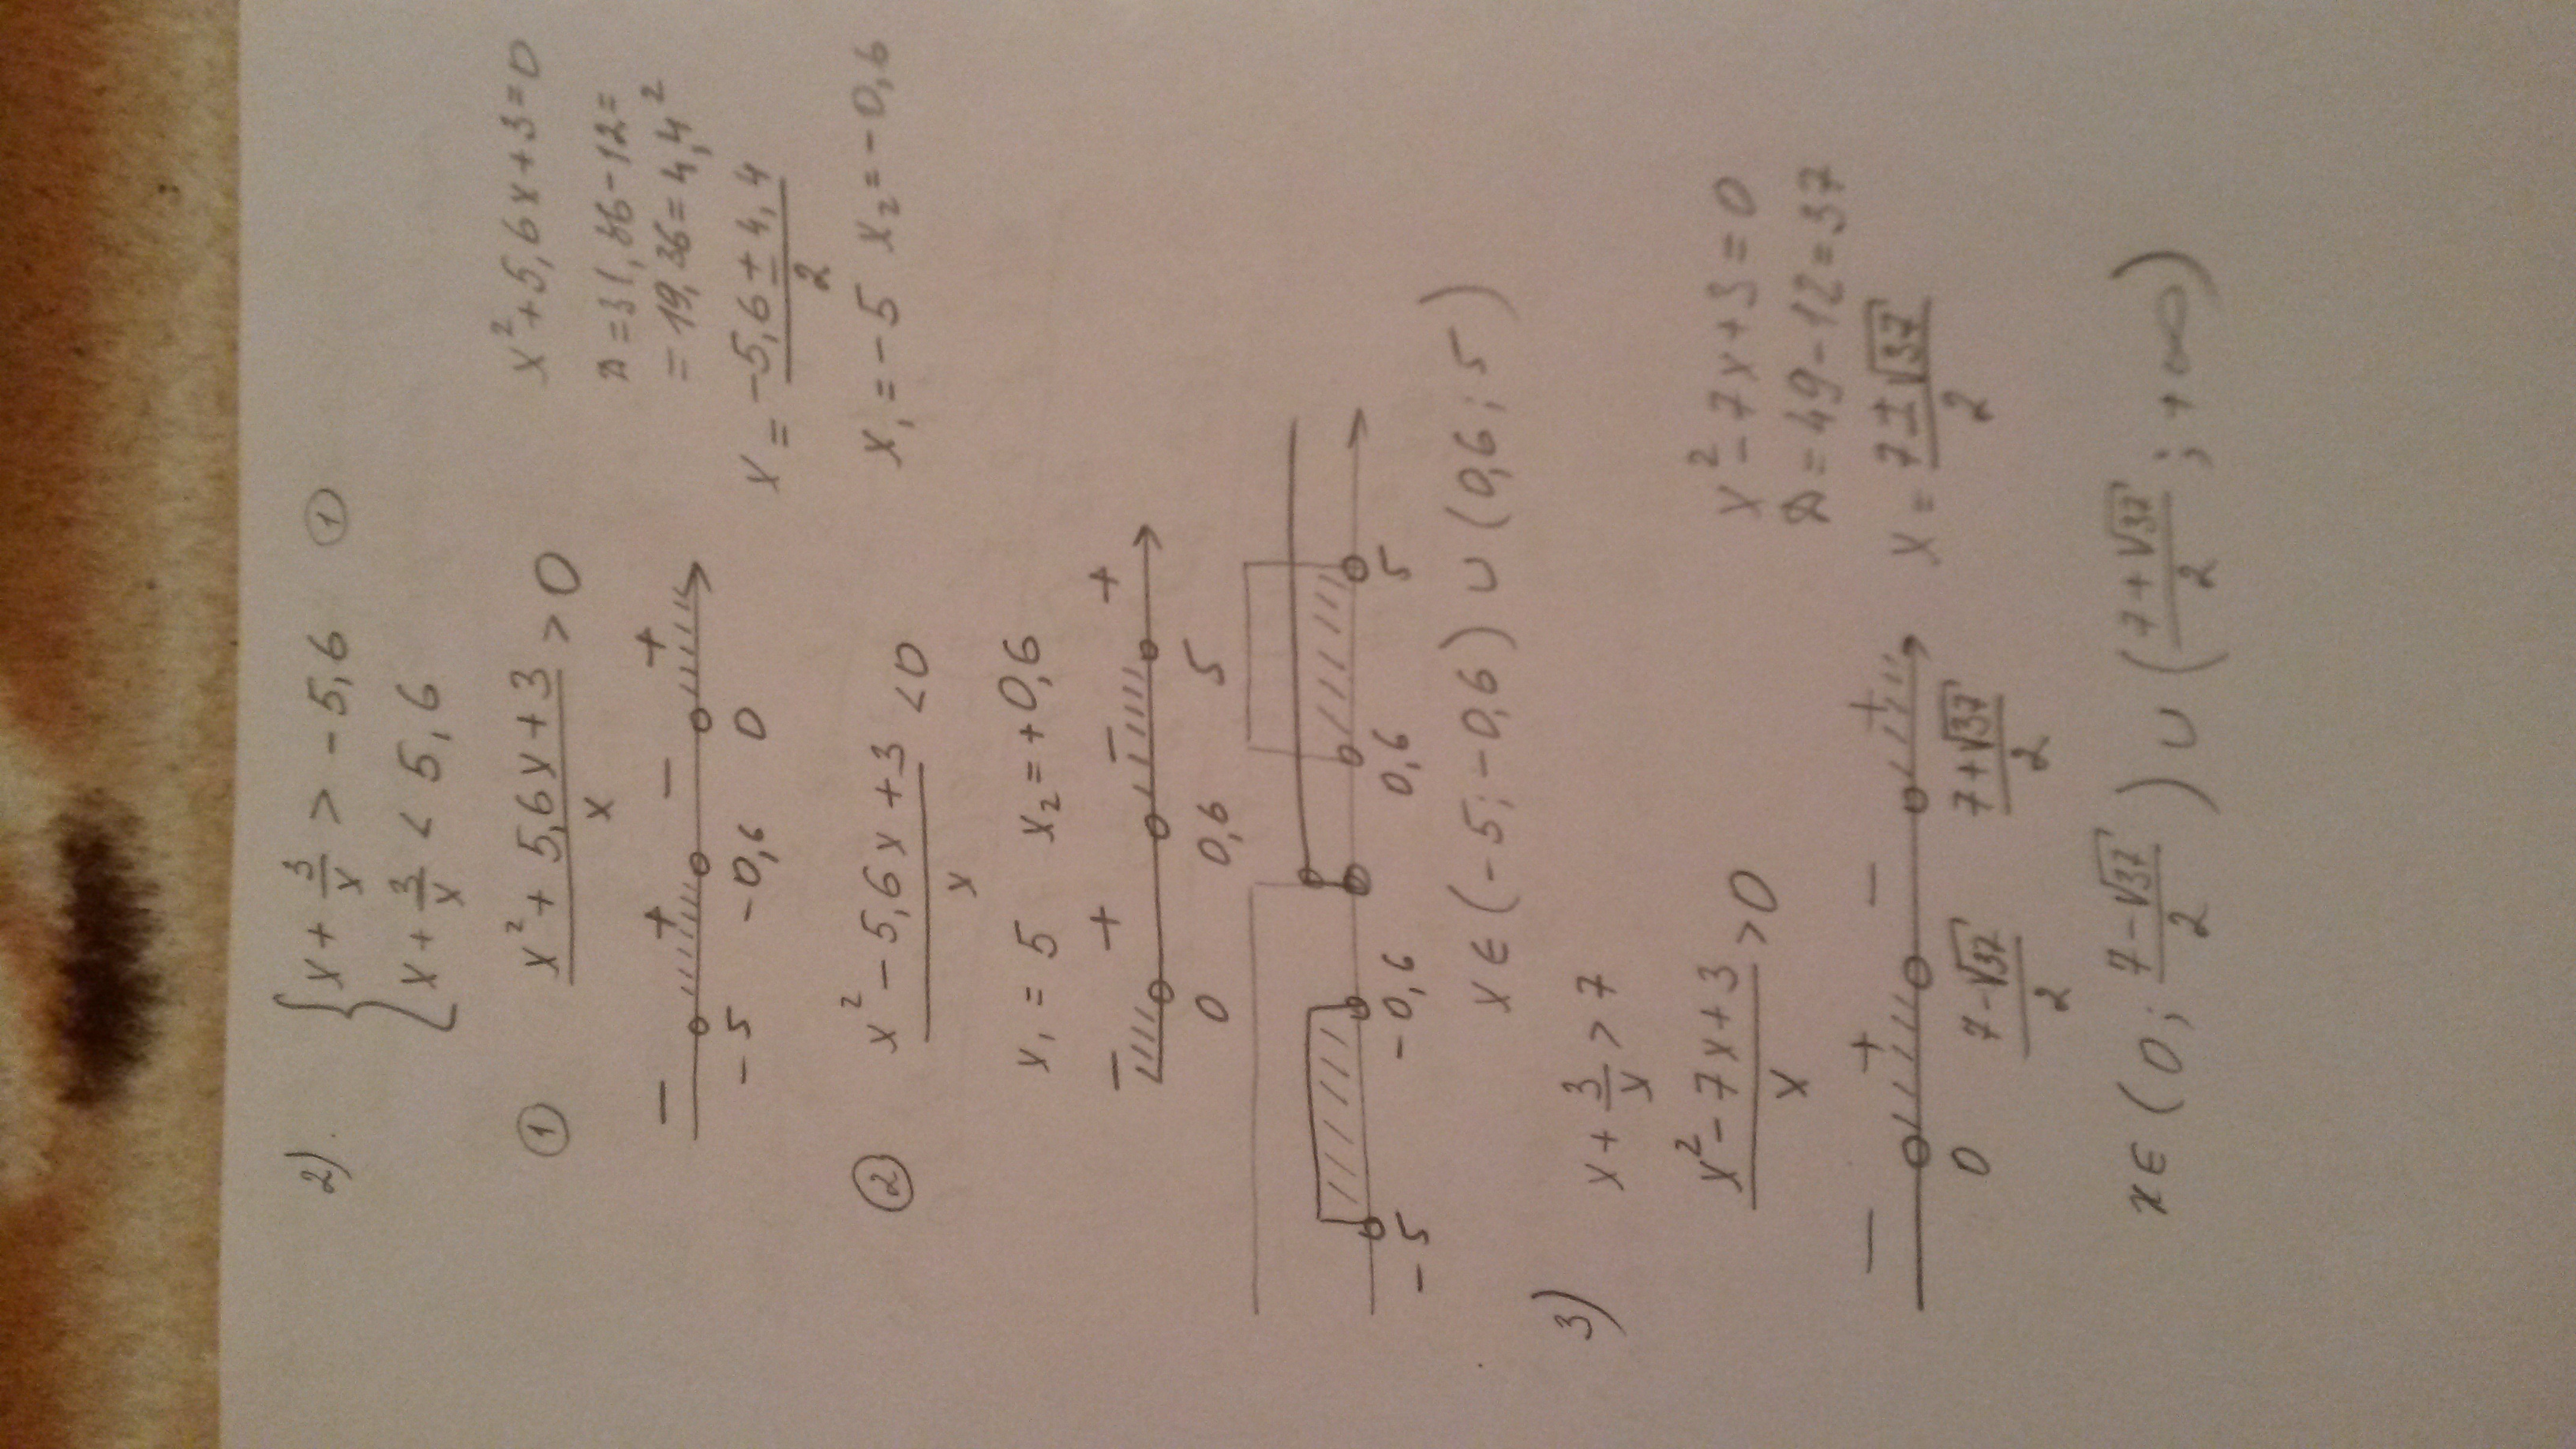 2). { x + 3/x > -5,6 ①
x + 3/x < 5,6
① (x² + 5,6x + 3)/x > 0
x² + 5,6x + 3 = 0
D = 31,36 - 12 =
= 19,36 = 4,4²
x = (-5,6 ± 4,4)/2
x₁ = -5 x₂ = -0,6
− + − +
-5 -0,6 0
② (x² - 5,6x + 3)/x < 0
x₁ = 5 x₂ = +0,6
− + − +
0 0,6 5
-5 -0,6 0,6 5
x ∈ (-5; -0,6) ∪ (0,6; 5)
3) x + 3/x > 7
(x² - 7x + 3)/x > 0
x² - 7x + 3 = 0
D = 49 - 12 = 37
x = (7 ± √37)/2
− + − +
0 (7 - √37)/2 (7 + √37)/2
x ∈ (0; (7 - √37)/2) ∪ ((7 + √37)/2; +∞)